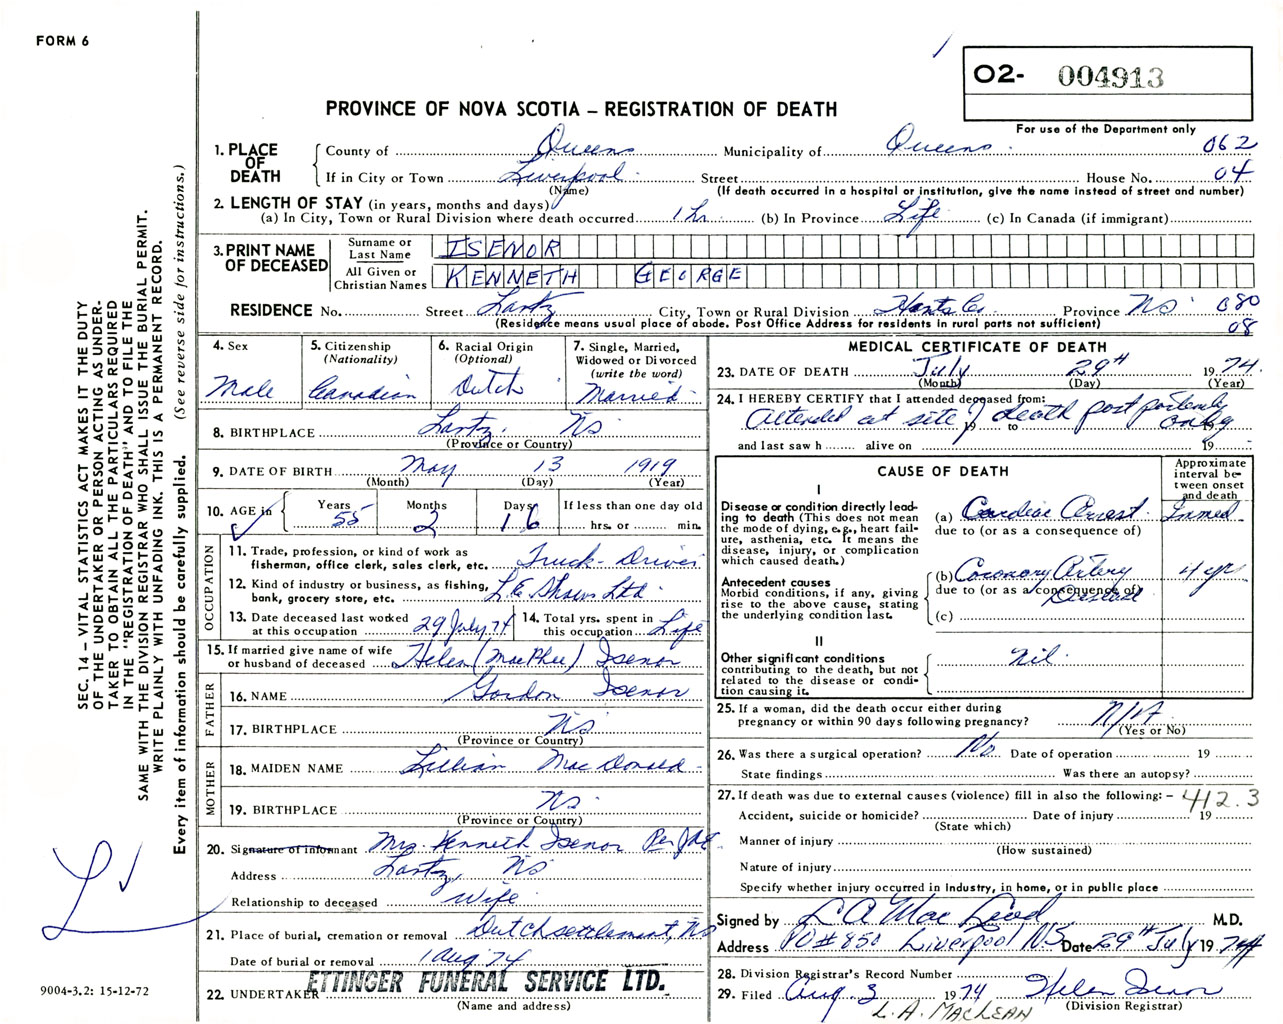 FORM 6
O2- 004913
PROVINCE OF NOVA SCOTIA – REGISTRATION OF DEATH
For use of the Department only
1. PLACE OF DEATH
County of Queens Municipality of Queens 062
If in City or Town Liverpool Street House No. 04
(Name) (If death occurred in a hospital or institution, give the name instead of street and number)
2. LENGTH OF STAY (in years, months and days)
(a) In City, Town or Rural Division where death occurred 1 hr (b) In Province Life (c) In Canada (if immigrant)
3. PRINT NAME OF DECEASED
Surname or Last Name ISENOR
All Given or Christian Names KENNETH GEORGE
RESIDENCE No. Street Lantz City, Town or Rural Division Hants Co. Province NS 080
(Residence means usual place of abode. Post Office Address for residents in rural parts not sufficient) 08
4. Sex
Male
5. Citizenship
(Nationality)
Canadian
6. Racial Origin
(Optional)
Dutch
7. Single, Married,
Widowed or Divorced
(write the word)
Married
8. BIRTHPLACE Lantz. NS
(Province or Country)
9. DATE OF BIRTH May 13 1919
(Month) (Day) (Year)
10. AGE in
Years 55
Months 2
Days 16
If less than one day old
hrs. or min.
OCCUPATION
11. Trade, profession, or kind of work as
fisherman, office clerk, sales clerk, etc. Truck-Driver
12. Kind of industry or business, as fishing,
bank, grocery store, etc. L.E. Shaws Ltd.
13. Date deceased last worked
at this occupation 29 July 74
14. Total yrs. spent in
this occupation Life
15. If married give name of wife
or husband of deceased Helen (MacPhee) Isenor
FATHER
16. NAME Gordon Isenor
17. BIRTHPLACE NS
(Province or Country)
MOTHER
18. MAIDEN NAME Lillian MacDonald
19. BIRTHPLACE NS
(Province or Country)
20. Signature of informant Mrs Kenneth Isenor Per
Address Lantz, NS
Relationship to deceased Wife
21. Place of burial, cremation or removal Dutch settlement, NS
Date of burial or removal 1 Aug 74
22. UNDERTAKER ETTINGER FUNERAL SERVICE LTD.
(Name and address)
MEDICAL CERTIFICATE OF DEATH
23. DATE OF DEATH July 29th 1974
(Month) (Day) (Year)
24. I HEREBY CERTIFY that I attended deceased from:
Attended at site of death post only
19 to 19
and last saw h alive on 19
CAUSE OF DEATH
Approximate interval between onset and death
I
Disease or condition directly leading to death (This does not mean the mode of dying, e.g., heart failure, asthenia, etc. It means the disease, injury, or complication which caused death.)
(a) Cardiac Arrest Immed
due to (or as a consequence of)
Antecedent causes
Morbid conditions, if any, giving rise to the above cause, stating the underlying condition last.
(b) Coronary Artery Disease 4 yr
due to (or as a consequence of)
(c)
II
Other significant conditions
contributing to the death, but not related to the disease or condition causing it. Nil
25. If a woman, did the death occur either during
pregnancy or within 90 days following pregnancy? N/A
(Yes or No)
26. Was there a surgical operation? No Date of operation 19
State findings Was there an autopsy?
27. If death was due to external causes (violence) fill in also the following: – 412.3
Accident, suicide or homicide? Date of injury 19
(State which)
Manner of injury
(How sustained)
Nature of injury
Specify whether injury occurred in industry, in home, or in public place
Signed by L A MacLeod M.D.
Address PO # 850 Liverpool N.S. Date 29th July 1974
28. Division Registrar's Record Number
29. Filed Aug. 3 1974 Helen Isenor
(Division Registrar)
L. A. MACLEAN
SEC. 14 – VITAL STATISTICS ACT MAKES IT THE DUTY
OF THE UNDERTAKER OR PERSON ACTING AS UNDER-
TAKER TO OBTAIN ALL THE PARTICULARS REQUIRED
IN THE "REGISTRATION OF DEATH" AND TO FILE THE
SAME WITH THE DIVISION REGISTRAR WHO SHALL ISSUE THE BURIAL PERMIT.
WRITE PLAINLY WITH UNFADING INK. THIS IS A PERMANENT RECORD.
Every item of information should be carefully supplied. (See reverse side for instructions.)
9004-3.2: 15-12-72